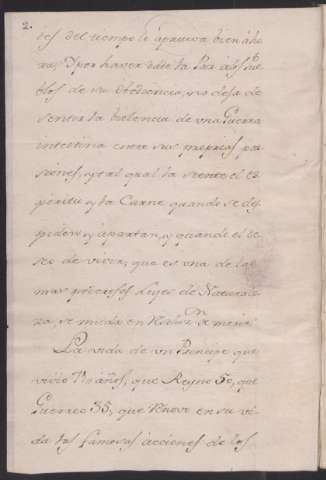 2.
des del tiempo le aprieva bien aho
ra, Y por haver dado la Paz a los Pue
blos de su obediencia, no dexa de
sentir la violencia de vna Guerra
intestina entre sus propios pa
siones, y tal qual la siente el es
piritu y la Carne quando se des
piden, y apartan, y quando el de
seo de vivir, que es vna de las
mas Leyes de Naturale
za, se muda en
La vida de vn Principe que
vivio años, que Reyno 50, que
Guerreo 35, que en su vi
da las famosas acciones de los